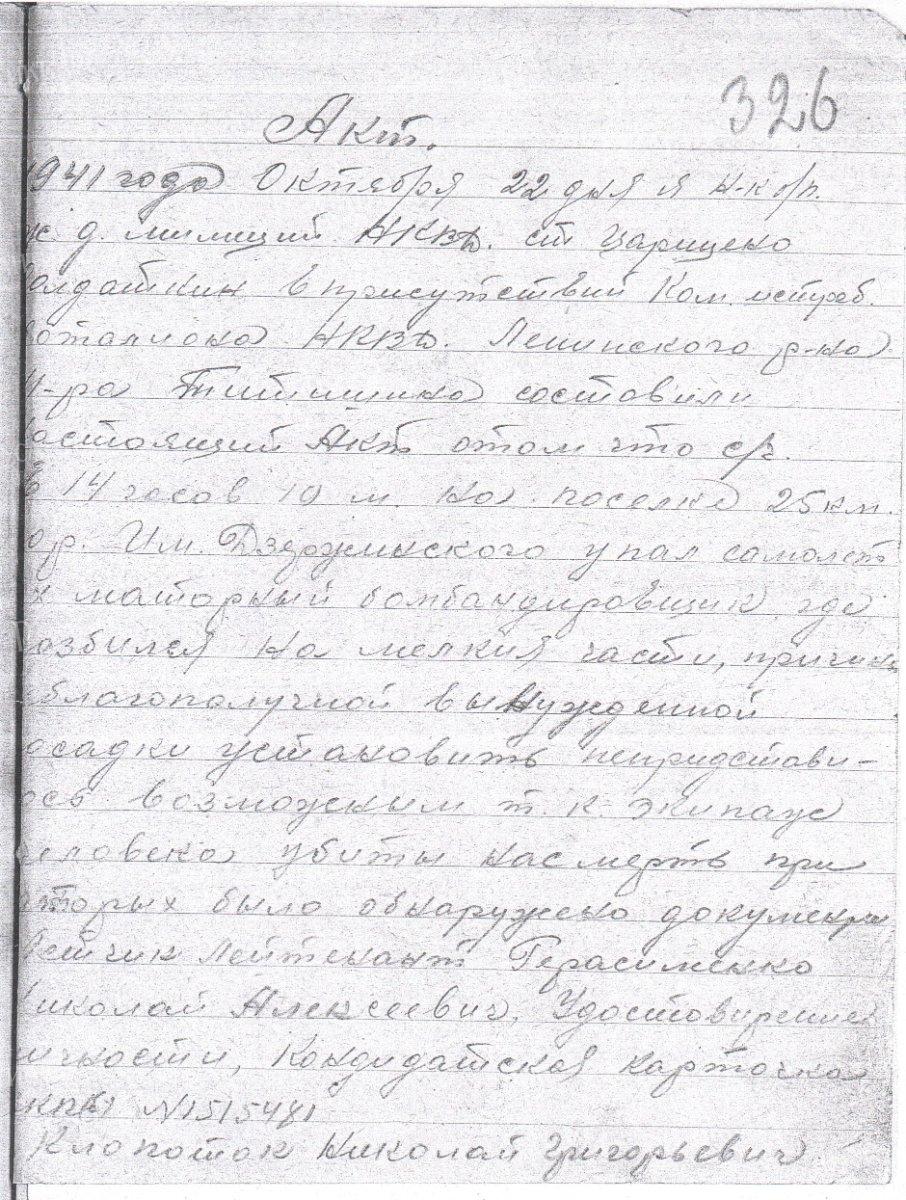 326
Акт.
1941 года Октября 22 дня я Н-к о/п.
ж. д. милиций НКВД. ст Царицено
олдаткин в присутствий Ком. истреб.
баталиона НКВД. Ленинского р-на
составили
астоящий Акт отом что с/г.
в 14 часов 10 м. на поселке 25 км.
ор. Им. Дзержинского упал самолет
х маторный бомбандировщик, где
разбился на мелкия части, причины
еблагополучной вынужденной
осадки установить непридстави-
ось возможным т. к. экипаж
человека убиты насмерть при
оторых было обнаружено документы
Летчик Лейтенант Герасименко
Николай Алексеевич, Удостовирение
ичности, Кандидатская карточка
вкп(б) N1515481
Клопоток Николай Григорьевич